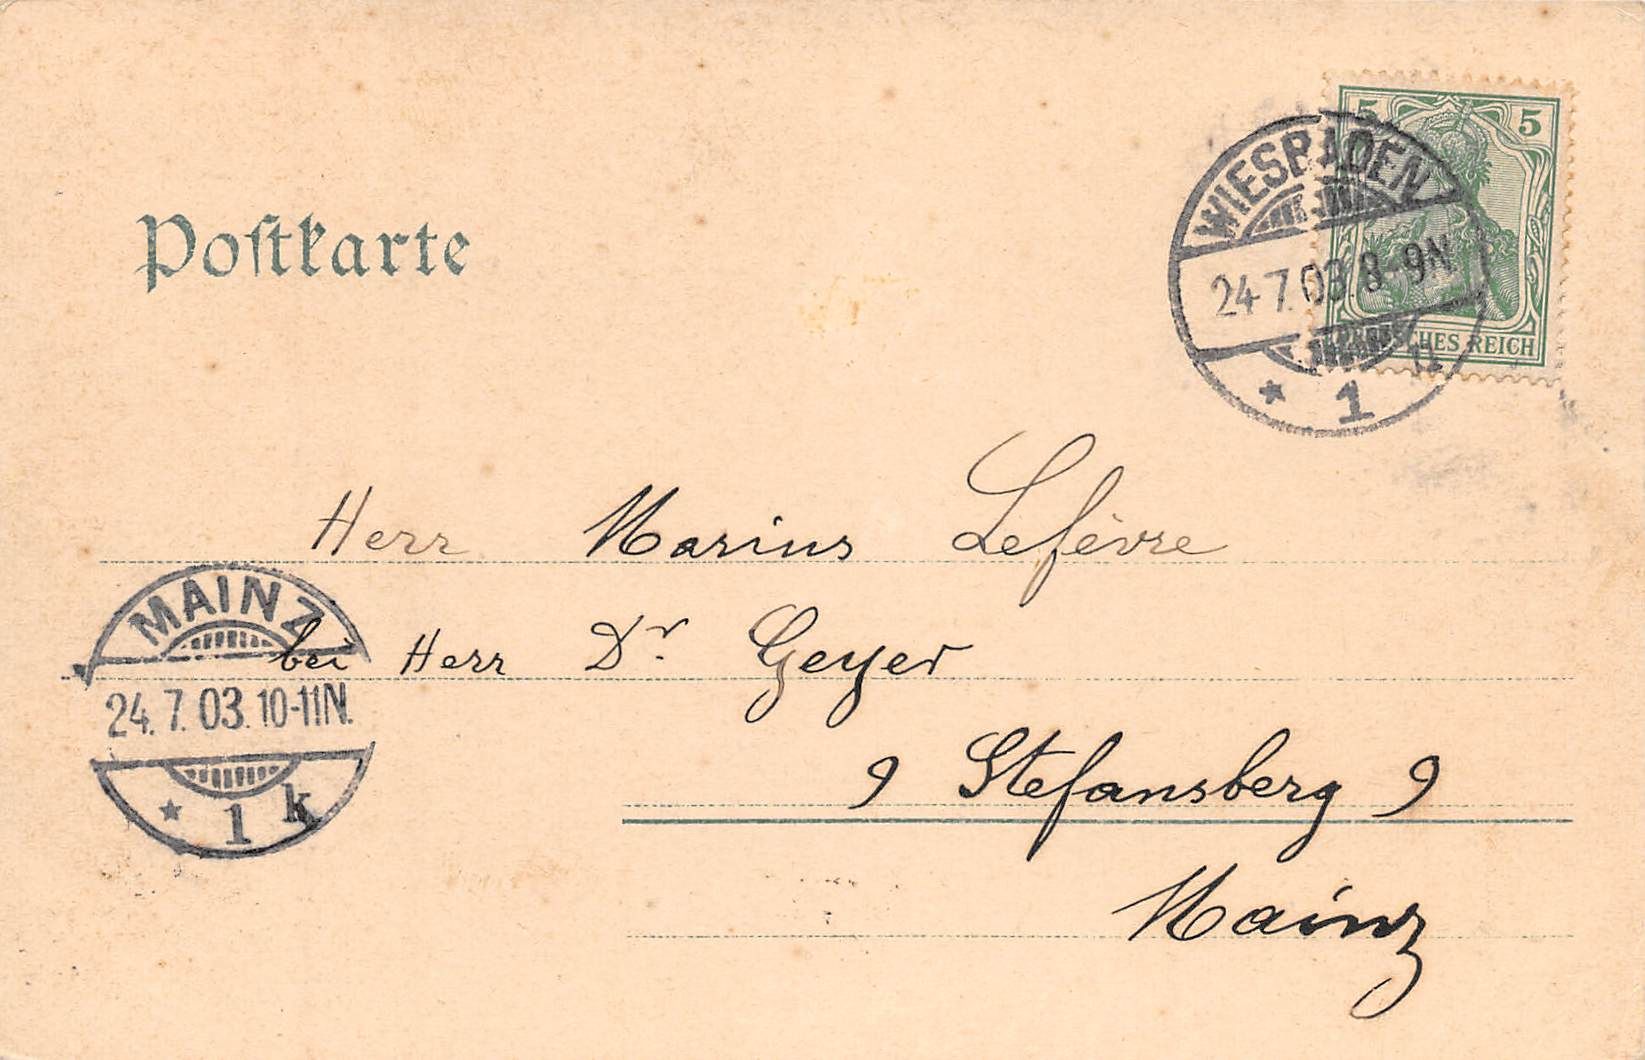 5 5
WIESBADEN
24.7.03 8-9N.
DEUTSCHES REICH
* 1
Postkarte
Herr Marius Lefèvre
MAINZ
bei Herr Dr Geyer
24.7.03.10-11N.
9 Stefansberg 9
* 1 k
Mainz